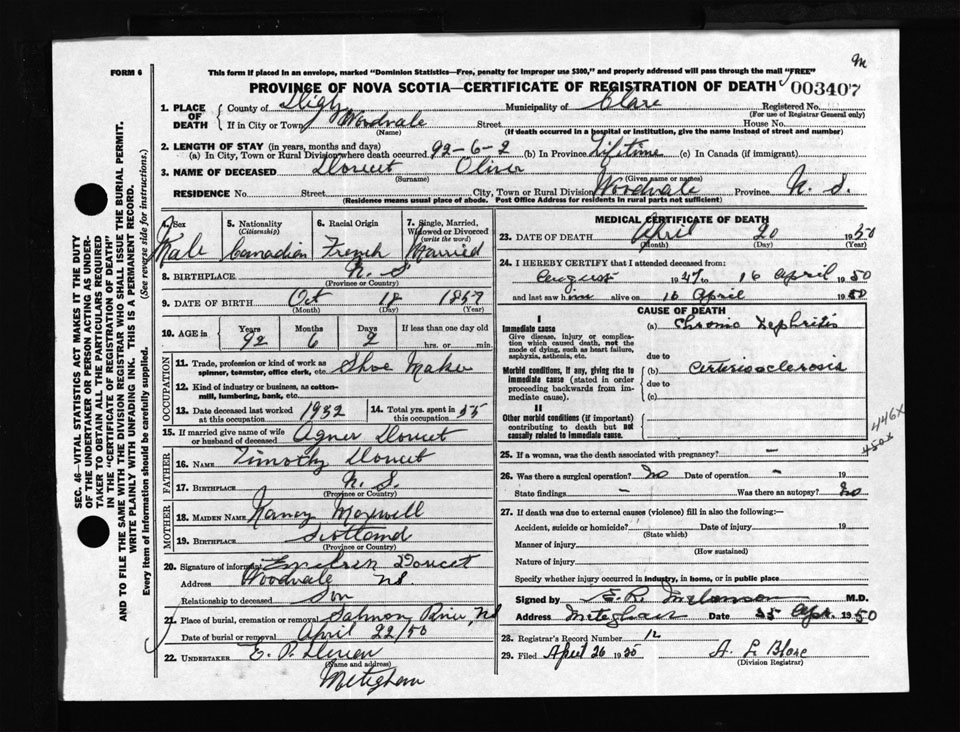 m
FORM 6
This form if placed in an envelope, marked "Dominion Statistics—Free, penalty for improper use $300," and properly addressed will pass through the mail "FREE"
PROVINCE OF NOVA SCOTIA—CERTIFICATE OF REGISTRATION OF DEATH 003407
SEC. 46—VITAL STATISTICS ACT MAKES IT THE DUTY
OF THE UNDERTAKER OR PERSON ACTING AS UNDER-
TAKER TO OBTAIN ALL THE PARTICULARS REQUIRED
IN THE "CERTIFICATE OF REGISTRATION OF DEATH"
AND TO FILE THE SAME WITH THE DIVISION REGISTRAR WHO SHALL ISSUE THE BURIAL PERMIT.
WRITE PLAINLY WITH UNFADING INK. THIS IS A PERMANENT RECORD.
Every item of information should be carefully supplied. (See reverse side for instructions.)
1. PLACE OF DEATH County of Digby Municipality of Clare Registered No.
(For use of Registrar General only)
If in City or Town Woodvale Street House No.
(Name) (If death occurred in a hospital or institution, give the name instead of street and number)
2. LENGTH OF STAY (in years, months and days)
(a) In City, Town or Rural Division where death occurred 92-6-2 (b) In Province Lifetime (c) In Canada (if immigrant)
3. NAME OF DECEASED Doucet Oliver
(Surname) (Given name or names)
RESIDENCE No. Street City, Town or Rural Division Woodvale Province N. S.
(Residence means usual place of abode. Post Office Address for residents in rural parts not sufficient)
4. Sex 5. Nationality (Citizenship) 6. Racial Origin 7. Single, Married, Widowed or Divorced (write the word)
Male Canadian French Married
8. BIRTHPLACE N. S
(Province or Country)
9. DATE OF BIRTH Oct 18 1857
(Month) (Day) (Year)
10. AGE in Years Months Days If less than one day old
92 6 2 hrs. or min.
OCCUPATION
11. Trade, profession or kind of work as spinner, teamster, office clerk, etc. Shoe Maker
12. Kind of industry or business, as cotton-mill, lumbering, bank, etc.
13. Date deceased last worked at this occupation 1932 14. Total yrs. spent in this occupation 55
15. If married give name of wife or husband of deceased Agner Doucet
FATHER
16. NAME Timothy Doucet
17. BIRTHPLACE N. S.
(Province or Country)
MOTHER
18. MAIDEN NAME Nancy Maxwell
19. BIRTHPLACE Scotland
(Province or Country)
20. Signature of informant Doucet
Address Woodvale NS
Relationship to deceased Son
21. Place of burial, cremation or removal Salmon River, NS
Date of burial or removal April 22/50
22. UNDERTAKER E. P.
(Name and address)
Meteghan
MEDICAL CERTIFICATE OF DEATH
23. DATE OF DEATH April 20 1950
(Month) (Day) (Year)
24. I HEREBY CERTIFY that I attended deceased from:
August 1947 to 16 April 1950
and last saw him alive on 16 April 1950
CAUSE OF DEATH
I
Immediate cause (a) Chronic Nephritis
Give disease, injury or complica-
tion which caused death, not the
mode of dying, such as heart failure,
asphyxia, asthenia, etc. due to
Morbid conditions, if any, giving rise to (b) Arteriosclerosis
immediate cause (stated in order due to
proceeding backwards from im-
mediate cause). (c)
II
Other morbid conditions (if important)
contributing to death but not
causally related to immediate cause.
446X
450X
25. If a woman, was the death associated with pregnancy? –
26. Was there a surgical operation? No Date of operation – 19
State findings – Was there an autopsy? No
27. If death was due to external causes (violence) fill in also the following:—
Accident, suicide or homicide? Date of injury 19
(State which)
Manner of injury
(How sustained)
Nature of injury
Specify whether injury occurred in industry, in home, or in public place
Signed by E. R. Melanson M.D.
Address Meteghan Date 25 Apr. 1950
28. Registrar's Record Number 12
29. Filed April 26 1950 A. L Blare
(Division Registrar)